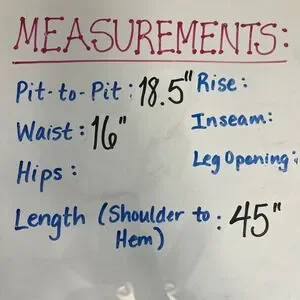 MEASUREMENTS:
Pit-to-Pit: 18.5" Rise:
Waist: 16" Inseam:
Hips: Leg Opening:
Length (Shoulder to : 45"
Hem)